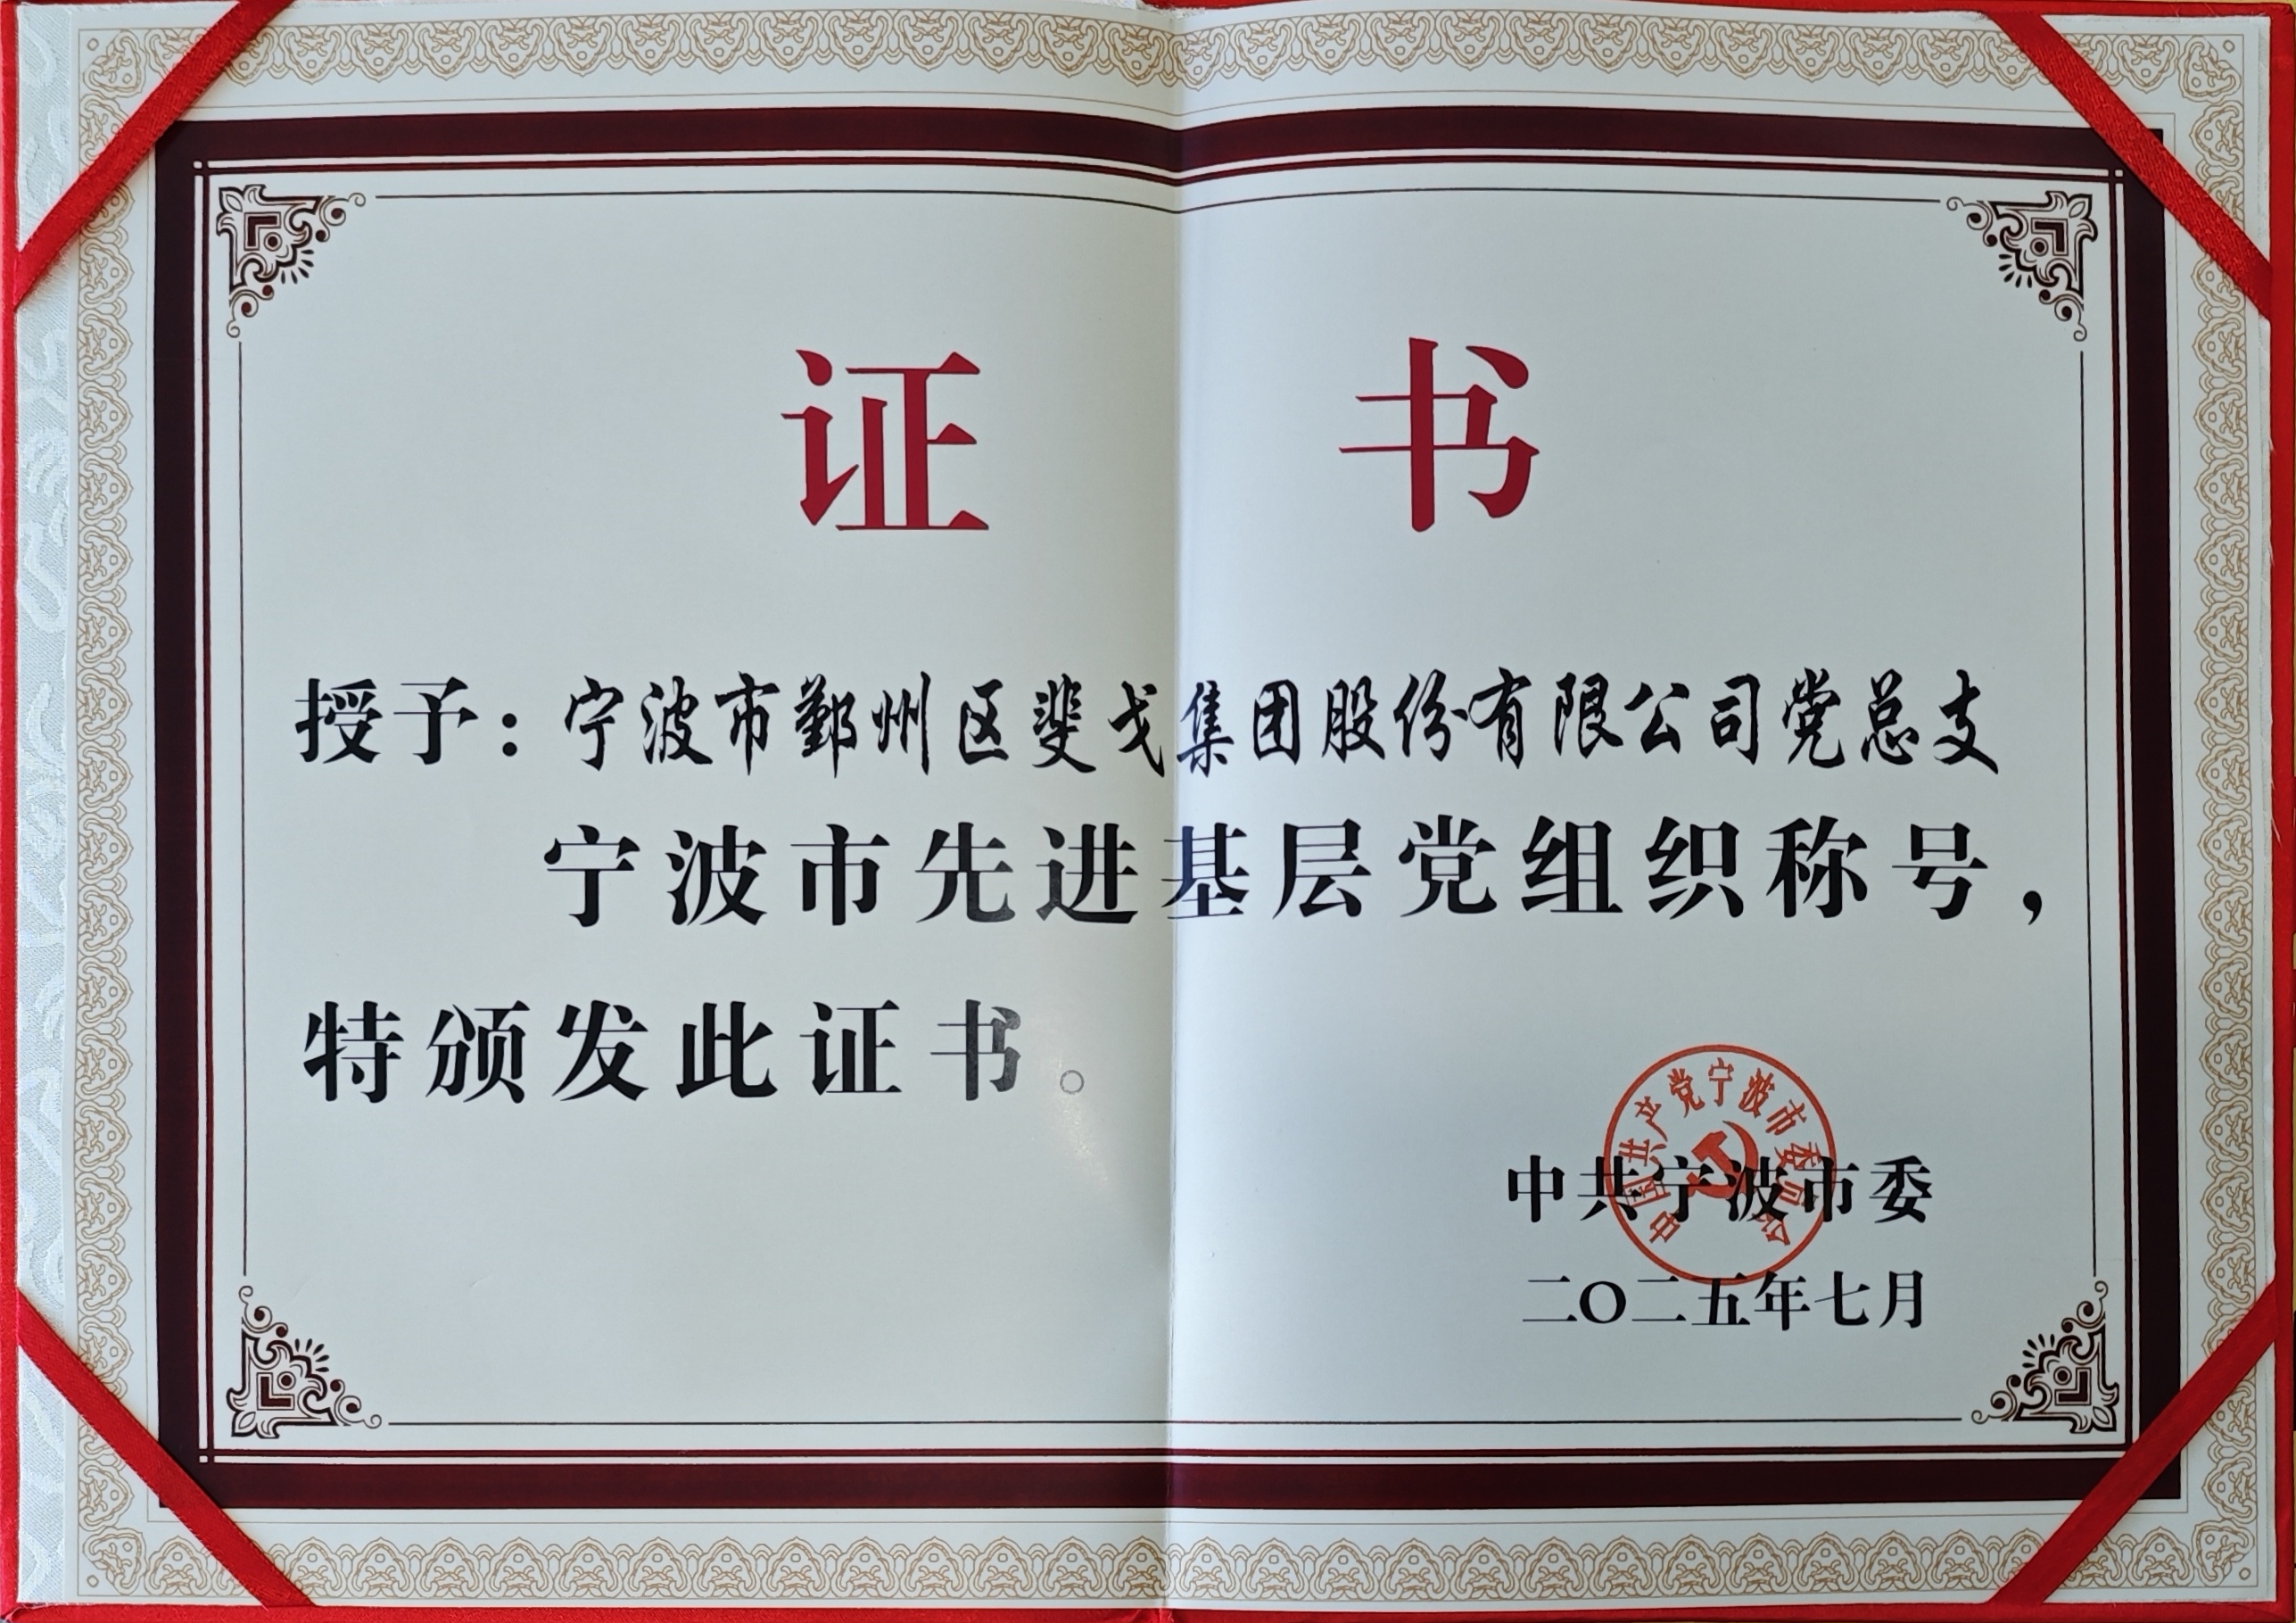 证书
授予：宁波市鄞州区斐戈集团股份有限公司党总支
宁波市先进基层党组织称号，
特颁发此证书。
中国共产党宁波市委员会
中共宁波市委
二〇二五年七月